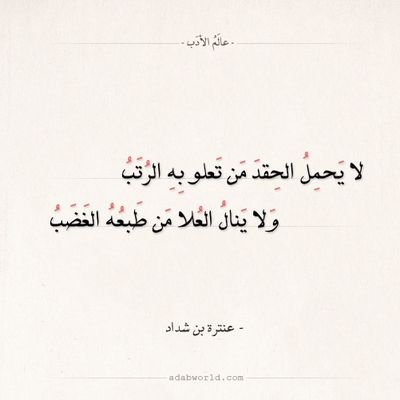 - عالَمُ الأدَب -
لا يَحمِلُ الحِقدَ مَن تَعلو بِهِ الرُتَبُ
وَلا يَنالُ العُلا مَن طَبعُهُ الغَضَبُ
- عنترة بن شداد
adabworld.com